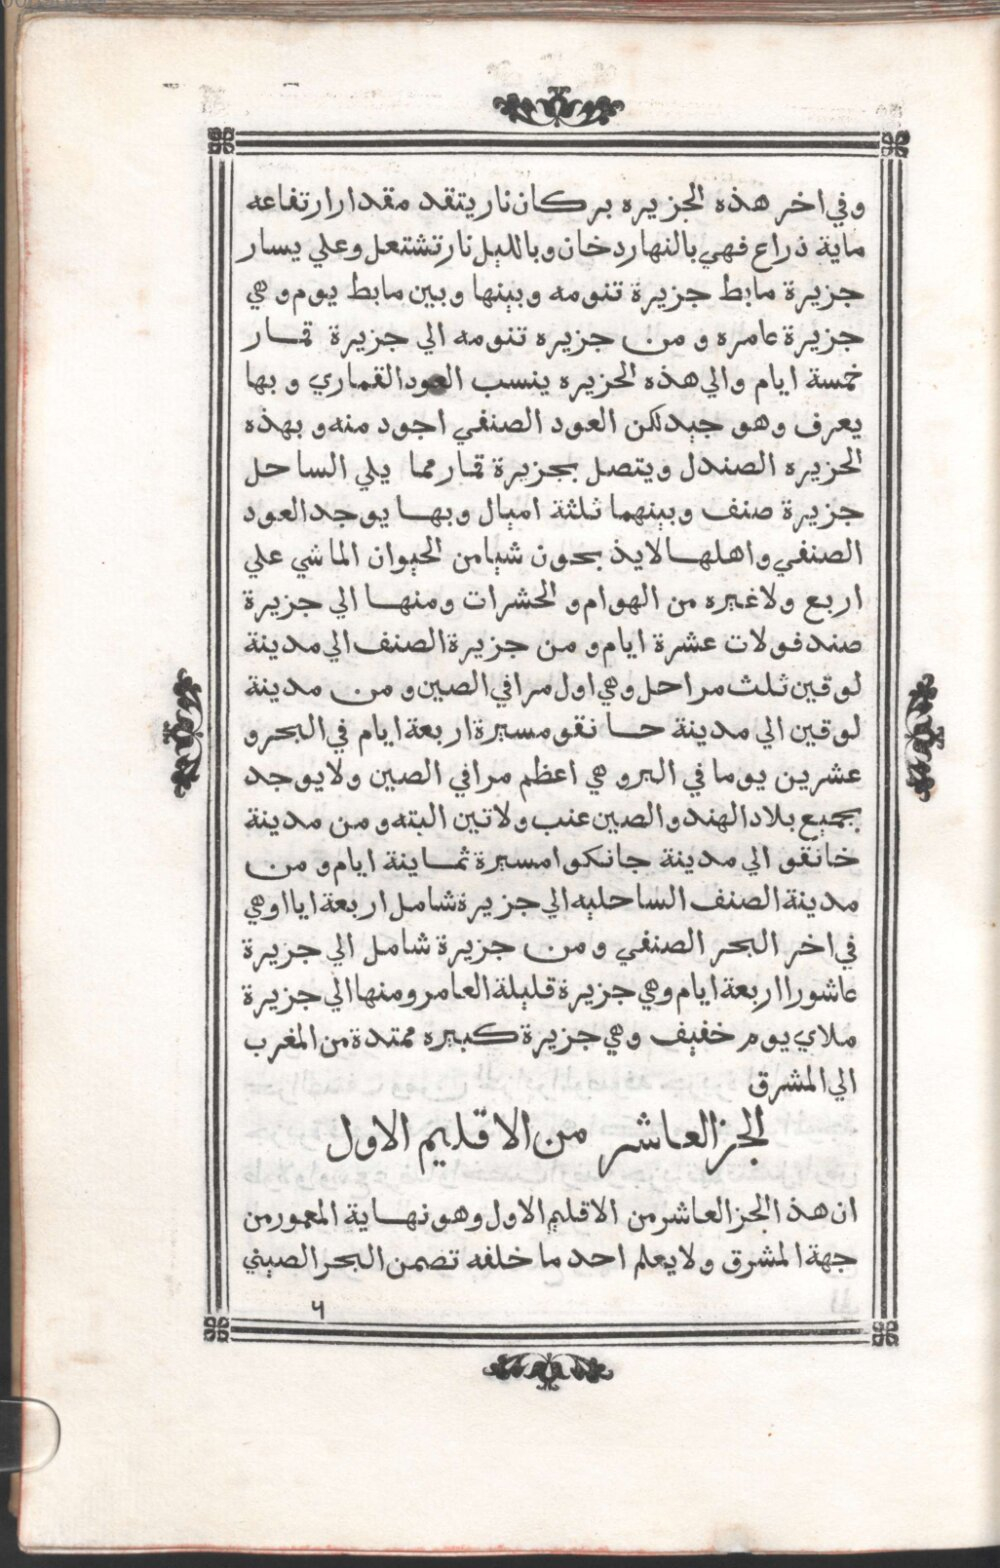 وفي اخر هذه الجزيره بركان نار يتقد مقدار ارتفاعه
ماية ذراع فهي بالنهار دخان وبالليل نار تشتعل وعلي يسار
جزيرة مابط جزيرة تنومه وبينها وبين مابط يوم وهي
جزيرة عامره ومن جزيره تنومه الي جزيرة قمار
خمسة ايام والي هذه الجزيره ينسب العود القماري وبها
يعرف وهو جيد لكن العود الصنفي اجود منه وبهذه
الجزيره الصندل ويتصل بجزيرة قمار مما يلي الساحل
جزيرة صنف وبينهما ثلثة اميال وبها يوجد العود
الصنفي واهلها لا يذبحون شيا من الحيوان الماشي علي
اربع ولا غيره من الهوام والحشرات ومنها الي جزيرة
صندفولات عشرة ايام ومن جزيرة الصنف الي مدينة
لوقين ثلث مراحل وهي اول مرافي الصين ومن مدينة
لوقين الي مدينة حانقو مسيرة اربعة ايام في البحر و
عشرين يوما في البر وهي اعظم مرافي الصين ولا يوجد
بجميع بلاد الهند والصين عنب ولا تين البته ومن مدينة
خانقو الي مدينة جانكوا مسيرة ثماينة ايام ومن
مدينة الصنف الساحليه الي جزيرة شامل اربعة ايااوهي
في اخر البحر الصنفي ومن جزيرة شامل الي جزيرة
عاشورا اربعة ايام وهي جزيرة قليلة العامر ومنها الي جزيرة
ملاي يوم خفيف وهي جزيرة كبيره ممتدة من المغرب
الي المشرق
الجز العاشر من الاقليم الاول
ان هذا الجز العاشر من الاقليم الاول وهو نهاية المعمور من
جهة المشرق ولا يعلم احد ما خلفه تضمن البحر الصيني
٦